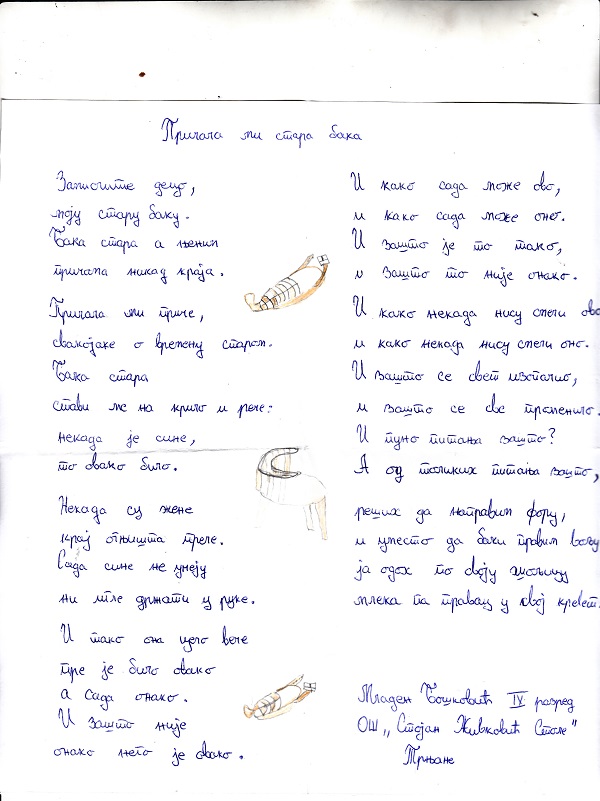 Причала ми стара бака
Запамтите децо,
моју стару баку.
Бака стара а њеним
причама никад краја.
Причала ми приче,
свакојаке о времену старом.
Бака стара
стави ме на крило и рече:
некада је сине,
то овако било.
Некада су жене
крај огњишта преле.
Сада сине не умеју
ни игле држати у руке.
И тако она цело вече
пре је било овако
а сада онако.
И зашто није
онако него је овако.
И како сада може ово,
и како сада може оно.
И зашто је то тако,
и зашто то није онако.
И како некада нису смели ово
и како некада нису смели оно.
И зашто се свет изопачио,
и зашто се све променило.
И пуно питања зашто?
А од толиких питања зашто,
реших да направим фору,
и уместо да баки правим вољу
ја одох по своју шољицу
млека па правац у свој кревет.
Младен Бошковић IV разред
ОШ „Стојан Живковић Столе"
Трњане